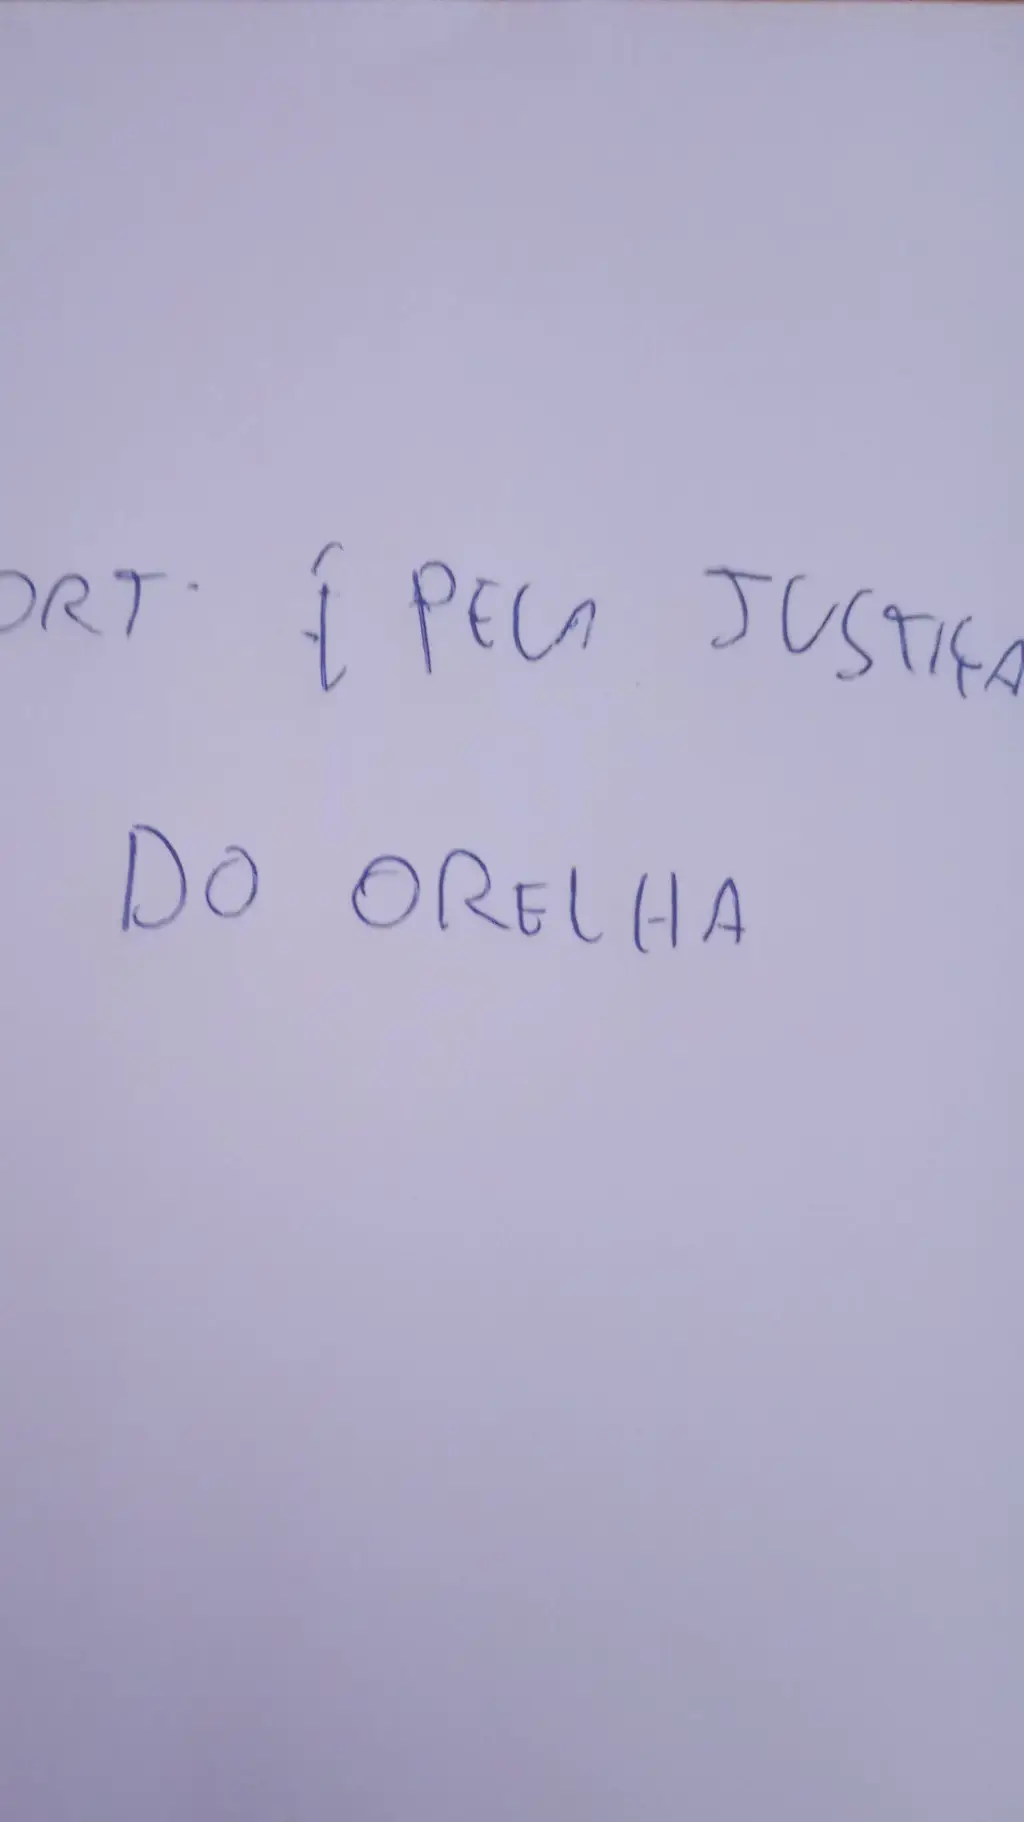 ORT. É PELA JUSTIÇA
DO ORELHA